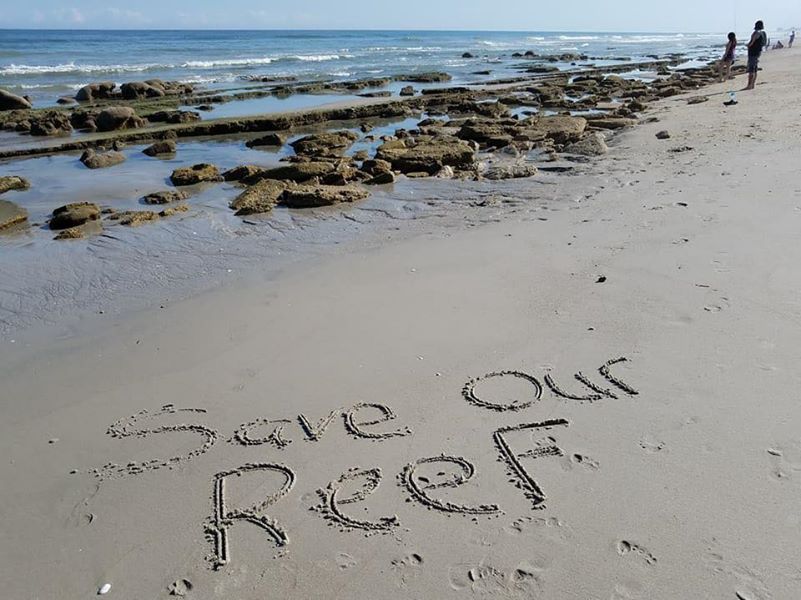 Save Our
ReeF